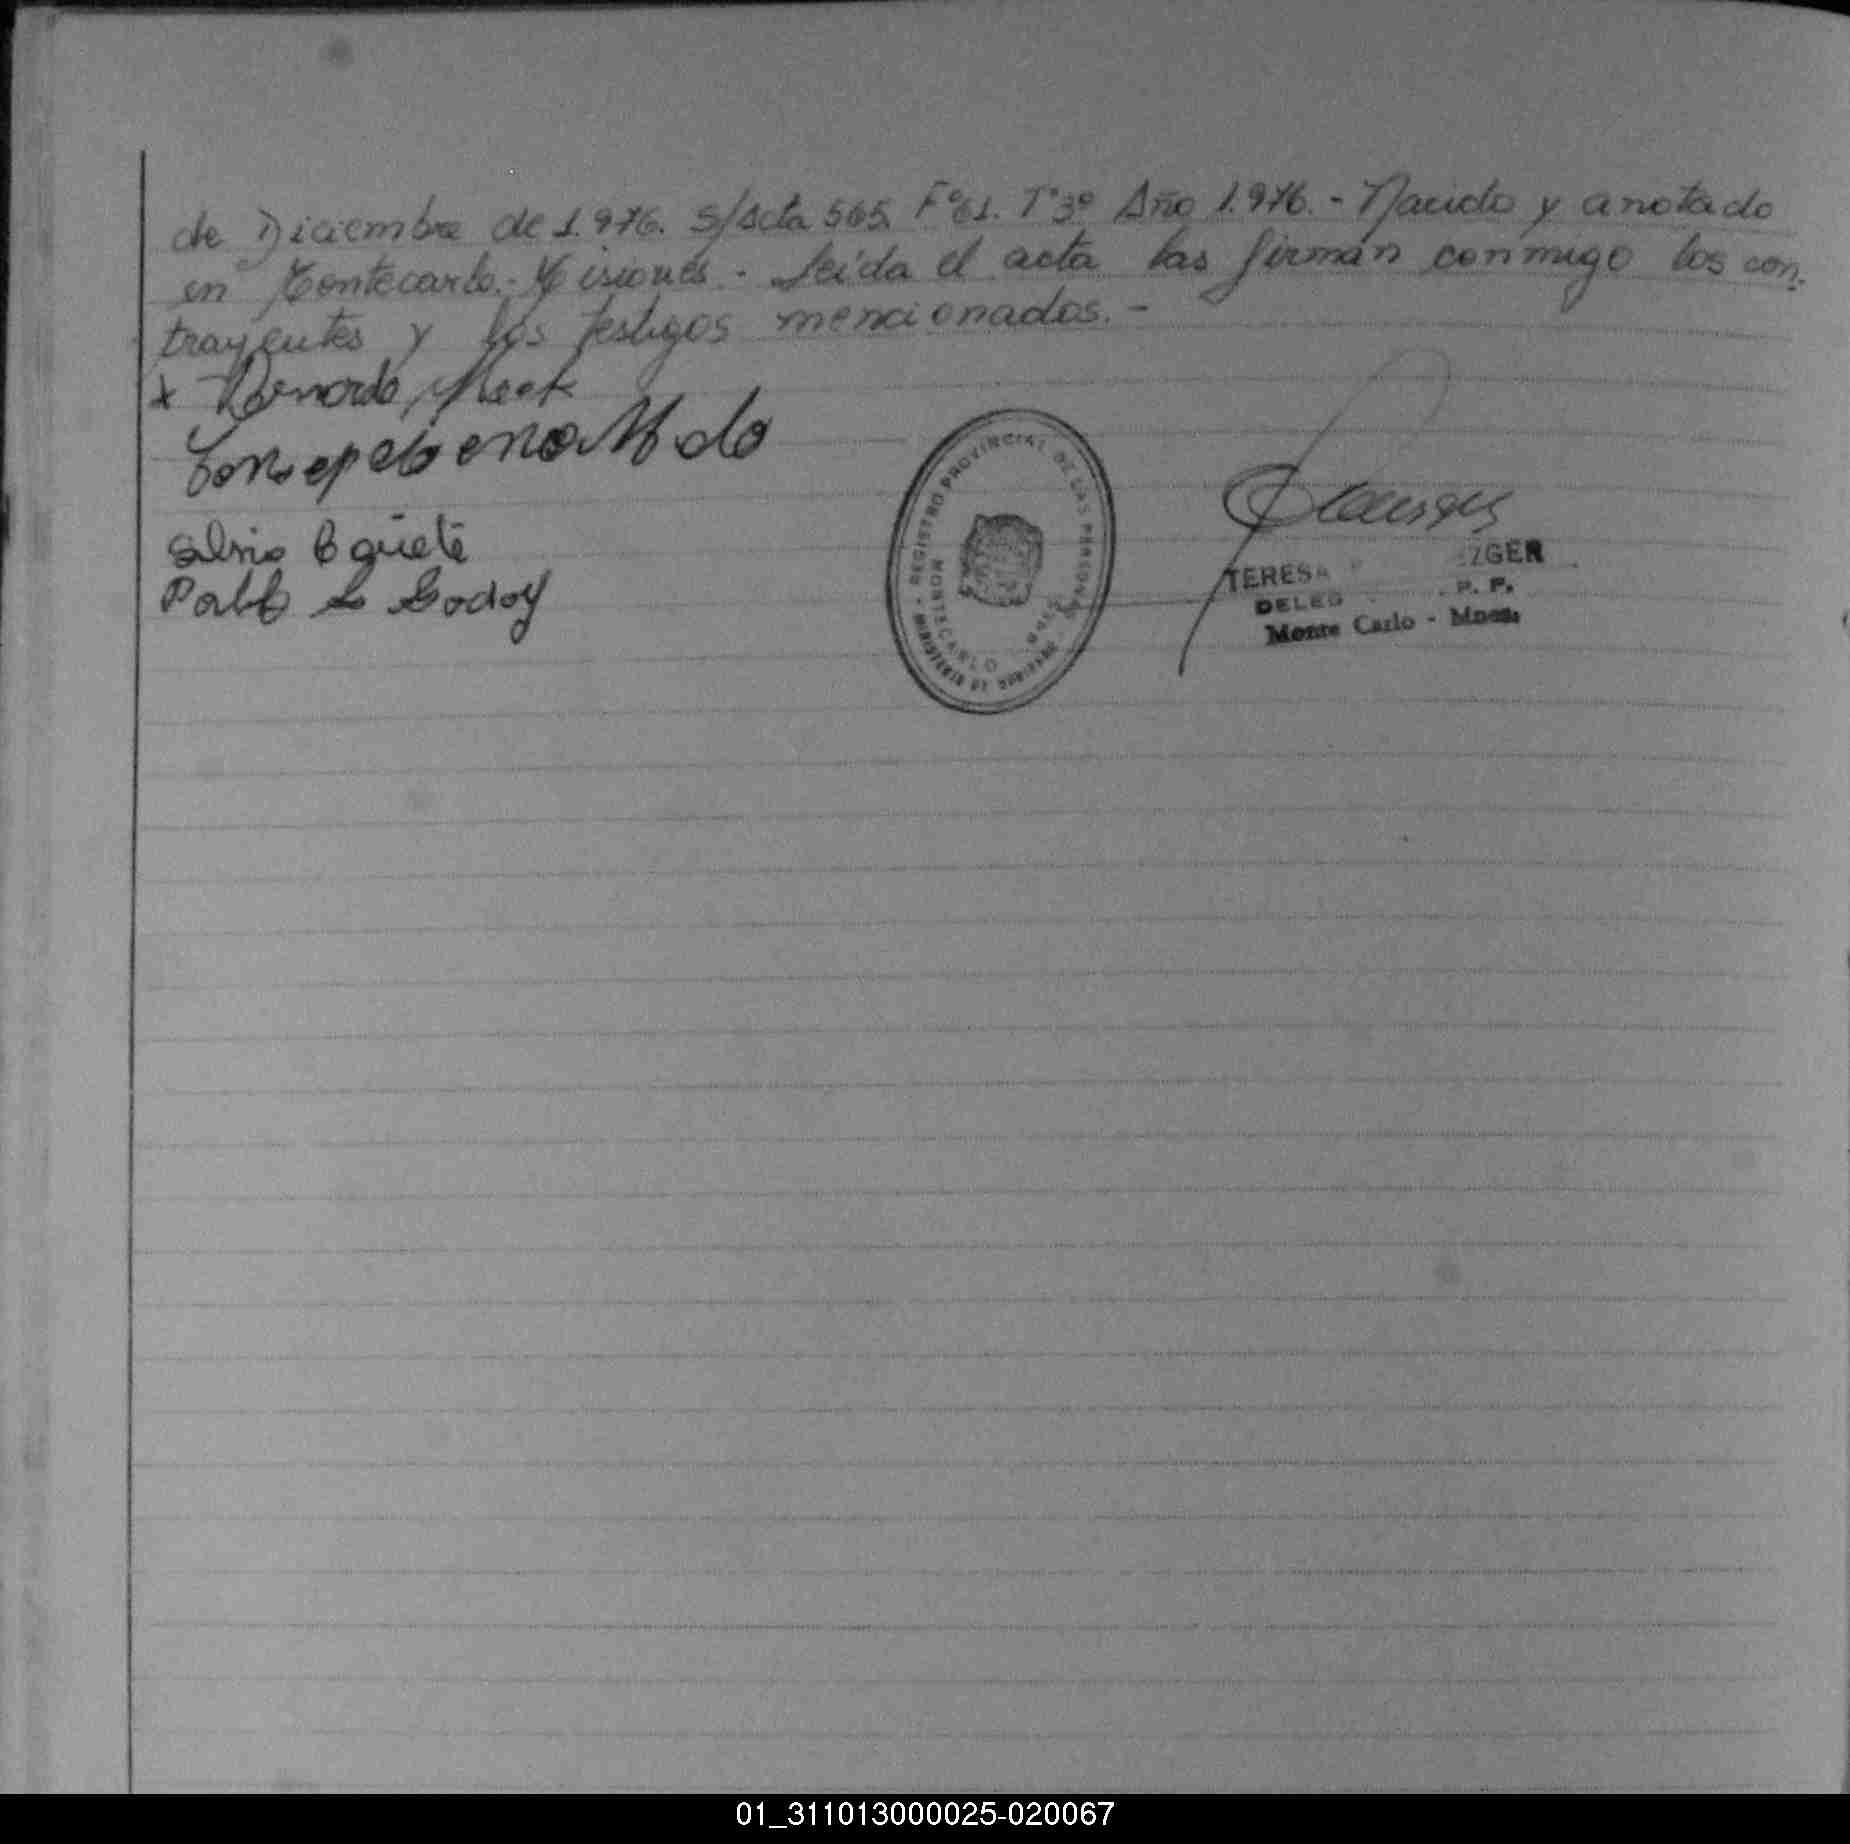 de Diciembre de 1.976. S/Acta 565. Fº61. Tº3º Año 1.976. - Nacido y anotado
en Montecarlo.- Misiones. - Leída el acta las firman conmigo los con-
trayentes y los testigos mencionados. -
x Bernardo
Silvio
Pablo Godoy
REGISTRO PROVINCIAL DE LAS PERSONAS
MONTECARLO
MINISTERIO DE GOBIERNO
TERESA ZGER
DELEG P. P.
Monte Carlo - Mnes.
01_311013000025-020067